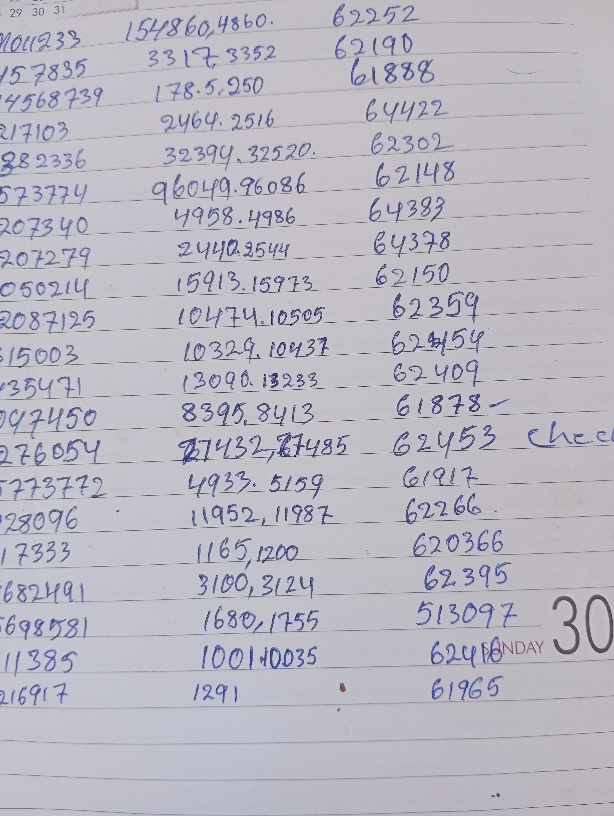 29 30 31
154860,4860. 62252
157835 3317,3352 62190
14568739 178.5,250 61888
217103 2464.2516 64422
382336 32394.32520. 62302
573774 96049.96086 62148
207340 4958.4986 64383
207279 2440.2544 64378
050214 15913.15973 62150
2087125 10474.10505 62359
15003 10329.10437
35471 13090.13233 62409
047450 8395,8413 61878-
276054 62453 Chec
5773772 4933.5159 61917
28096 11952,11987 62266.
17333 1165,1200 620366
682491 3100,3124 62395
698581 1680,1755 513097
11385
30
216917 1291 61965